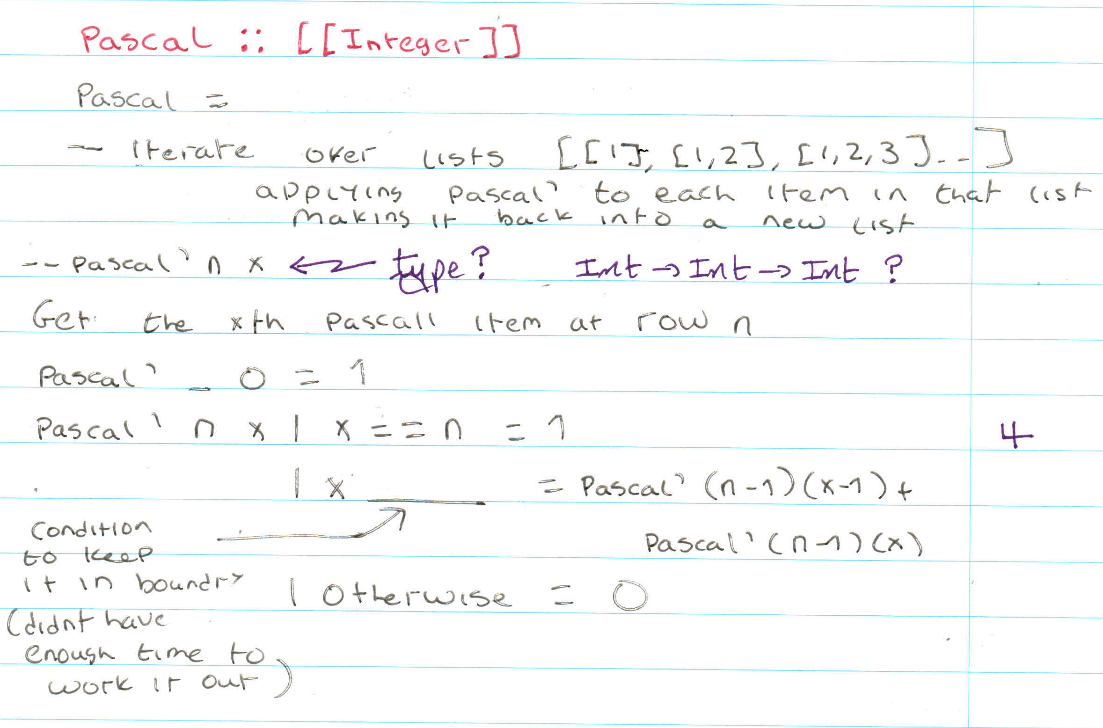 Pascal :: [[Integer]]
Pascal =
- Iterate over lists [[1], [1,2], [1,2,3]...]
applying pascal' to each item in that list
making it back into a new list
-- pascal' n x ← type? Int → Int → Int ?
Get the xth pascall item at row n
Pascal' _ 0 = 1
Pascal' n x | x == n = 1
4
| x ______ = Pascal' (n-1)(x-1) +
Condition
Pascal' (n-1)(x)
to keep
it in boundry
| otherwise = 0
(didnt have
enough time to
work it out)